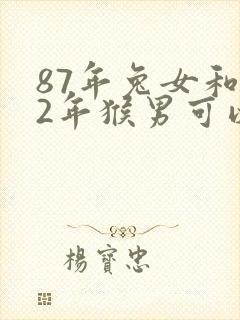 87年兔女和
2年猴男可以
楊寶忠